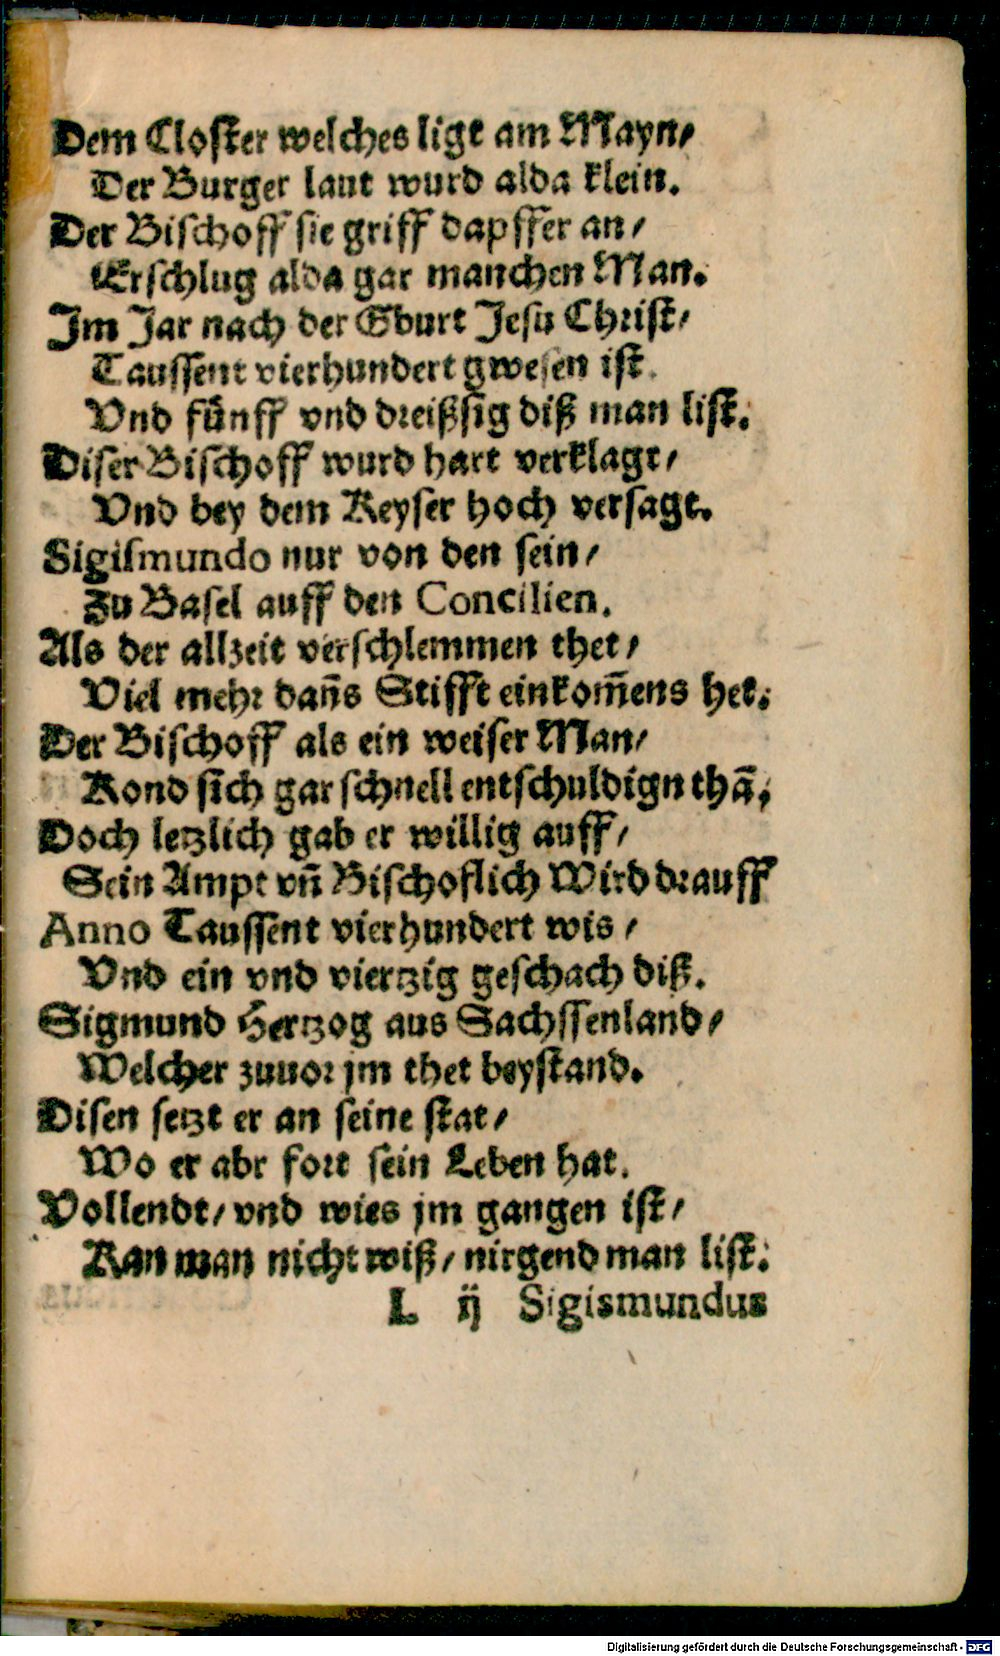 Dem Closter welches ligt am Mayn/
Der Burger laut wurd alda klein.
Der Bischoff sie griff dapffer an/
Erschlug alda gar manchen Man.
Im Jar nach der Gburt Jesu Christ/
Taussent vierhundert gwesen ist.
Vnd fünff vnd dreißsig diß man list.
Diser Bischoff wurd hart verklagt/
Vnd bey dem Keyser hoch versagt.
Sigismundo nur von den sein/
Zu Basel auff den Concilien.
Als der allzeit verschlemmen thet/
Viel mehr dan̄s Stifft einkom̄ens het.
Der Bischoff als ein weiser Man/
Kond sich gar schnell entschuldign thā.
Doch letzlich gab er willig auff/
Sein Ampt vn̄ Bischoflich Wird drauff
Anno Taussent vierhundert wis/
Vnd ein vnd viertzig geschach diß.
Sigmund Hertzog aus Sachssenland/
Welcher zuuor jm thet beystand.
Disen setzt er an seine stat/
Wo er abr fort sein Leben hat.
Vollendt/ vnd wies jm gangen ist/
Kan man nicht wiß/ nirgend man list.
L ij Sigismundus
Digitalisierung gefördert durch die Deutsche Forschungsgemeinschaft - DFG